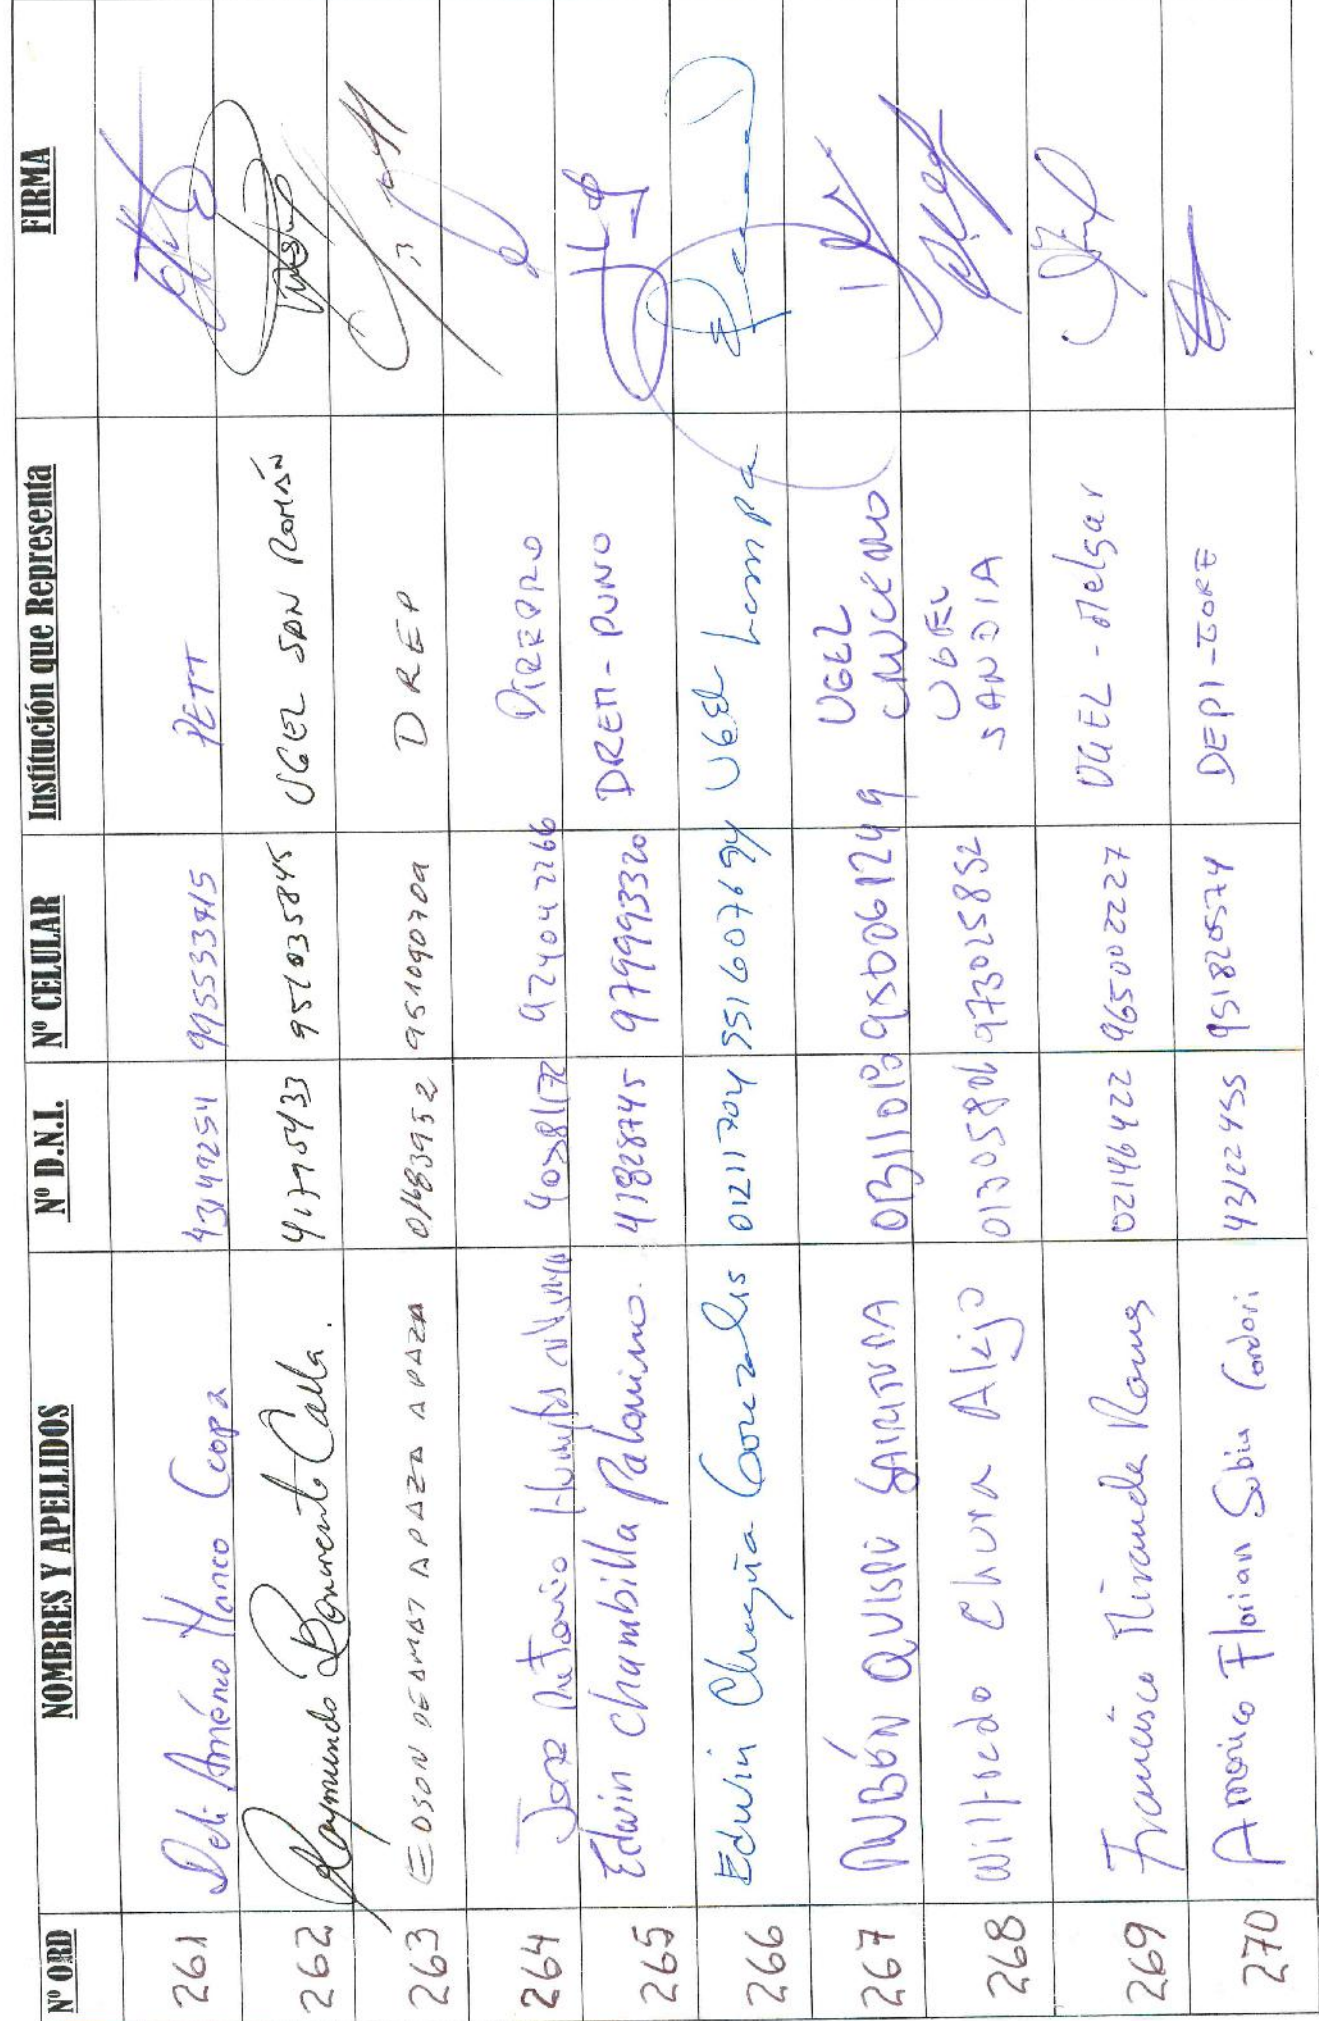 Nº ORD NOMBRES Y APELLIDOS Nº D.N.I. Nº CELULAR Institución que Representa FIRMA
261 Deli Américo Manco Ccopa 43149254 995533415 PETT
262 Raymundo Benavente Calla. 41775433 951035845 UGEL SAN ROMÁN
263 EDSON DEAMAT APAZA APAZA 01683952 951090709 DREP
264 Jorge Antonio 924042266 DIREPRO
265 Edwin Chambilla Palomino. 41828745 979993320 DREM-PUNO
266 Edwin Chuquia Gonzales 01211704 951607694 UGEL Lampa
267 RUBÉN QUISPE 950061249 UGEL
268 Wilfredo Chura Alejo 973025852 UGEL
SANDIA
269 Francisco Miranda Ramos 02146422 965002227 UGEL - Melgar
270 Americo Florian Subia Condori 43122455 951820574 DEPI-GORE